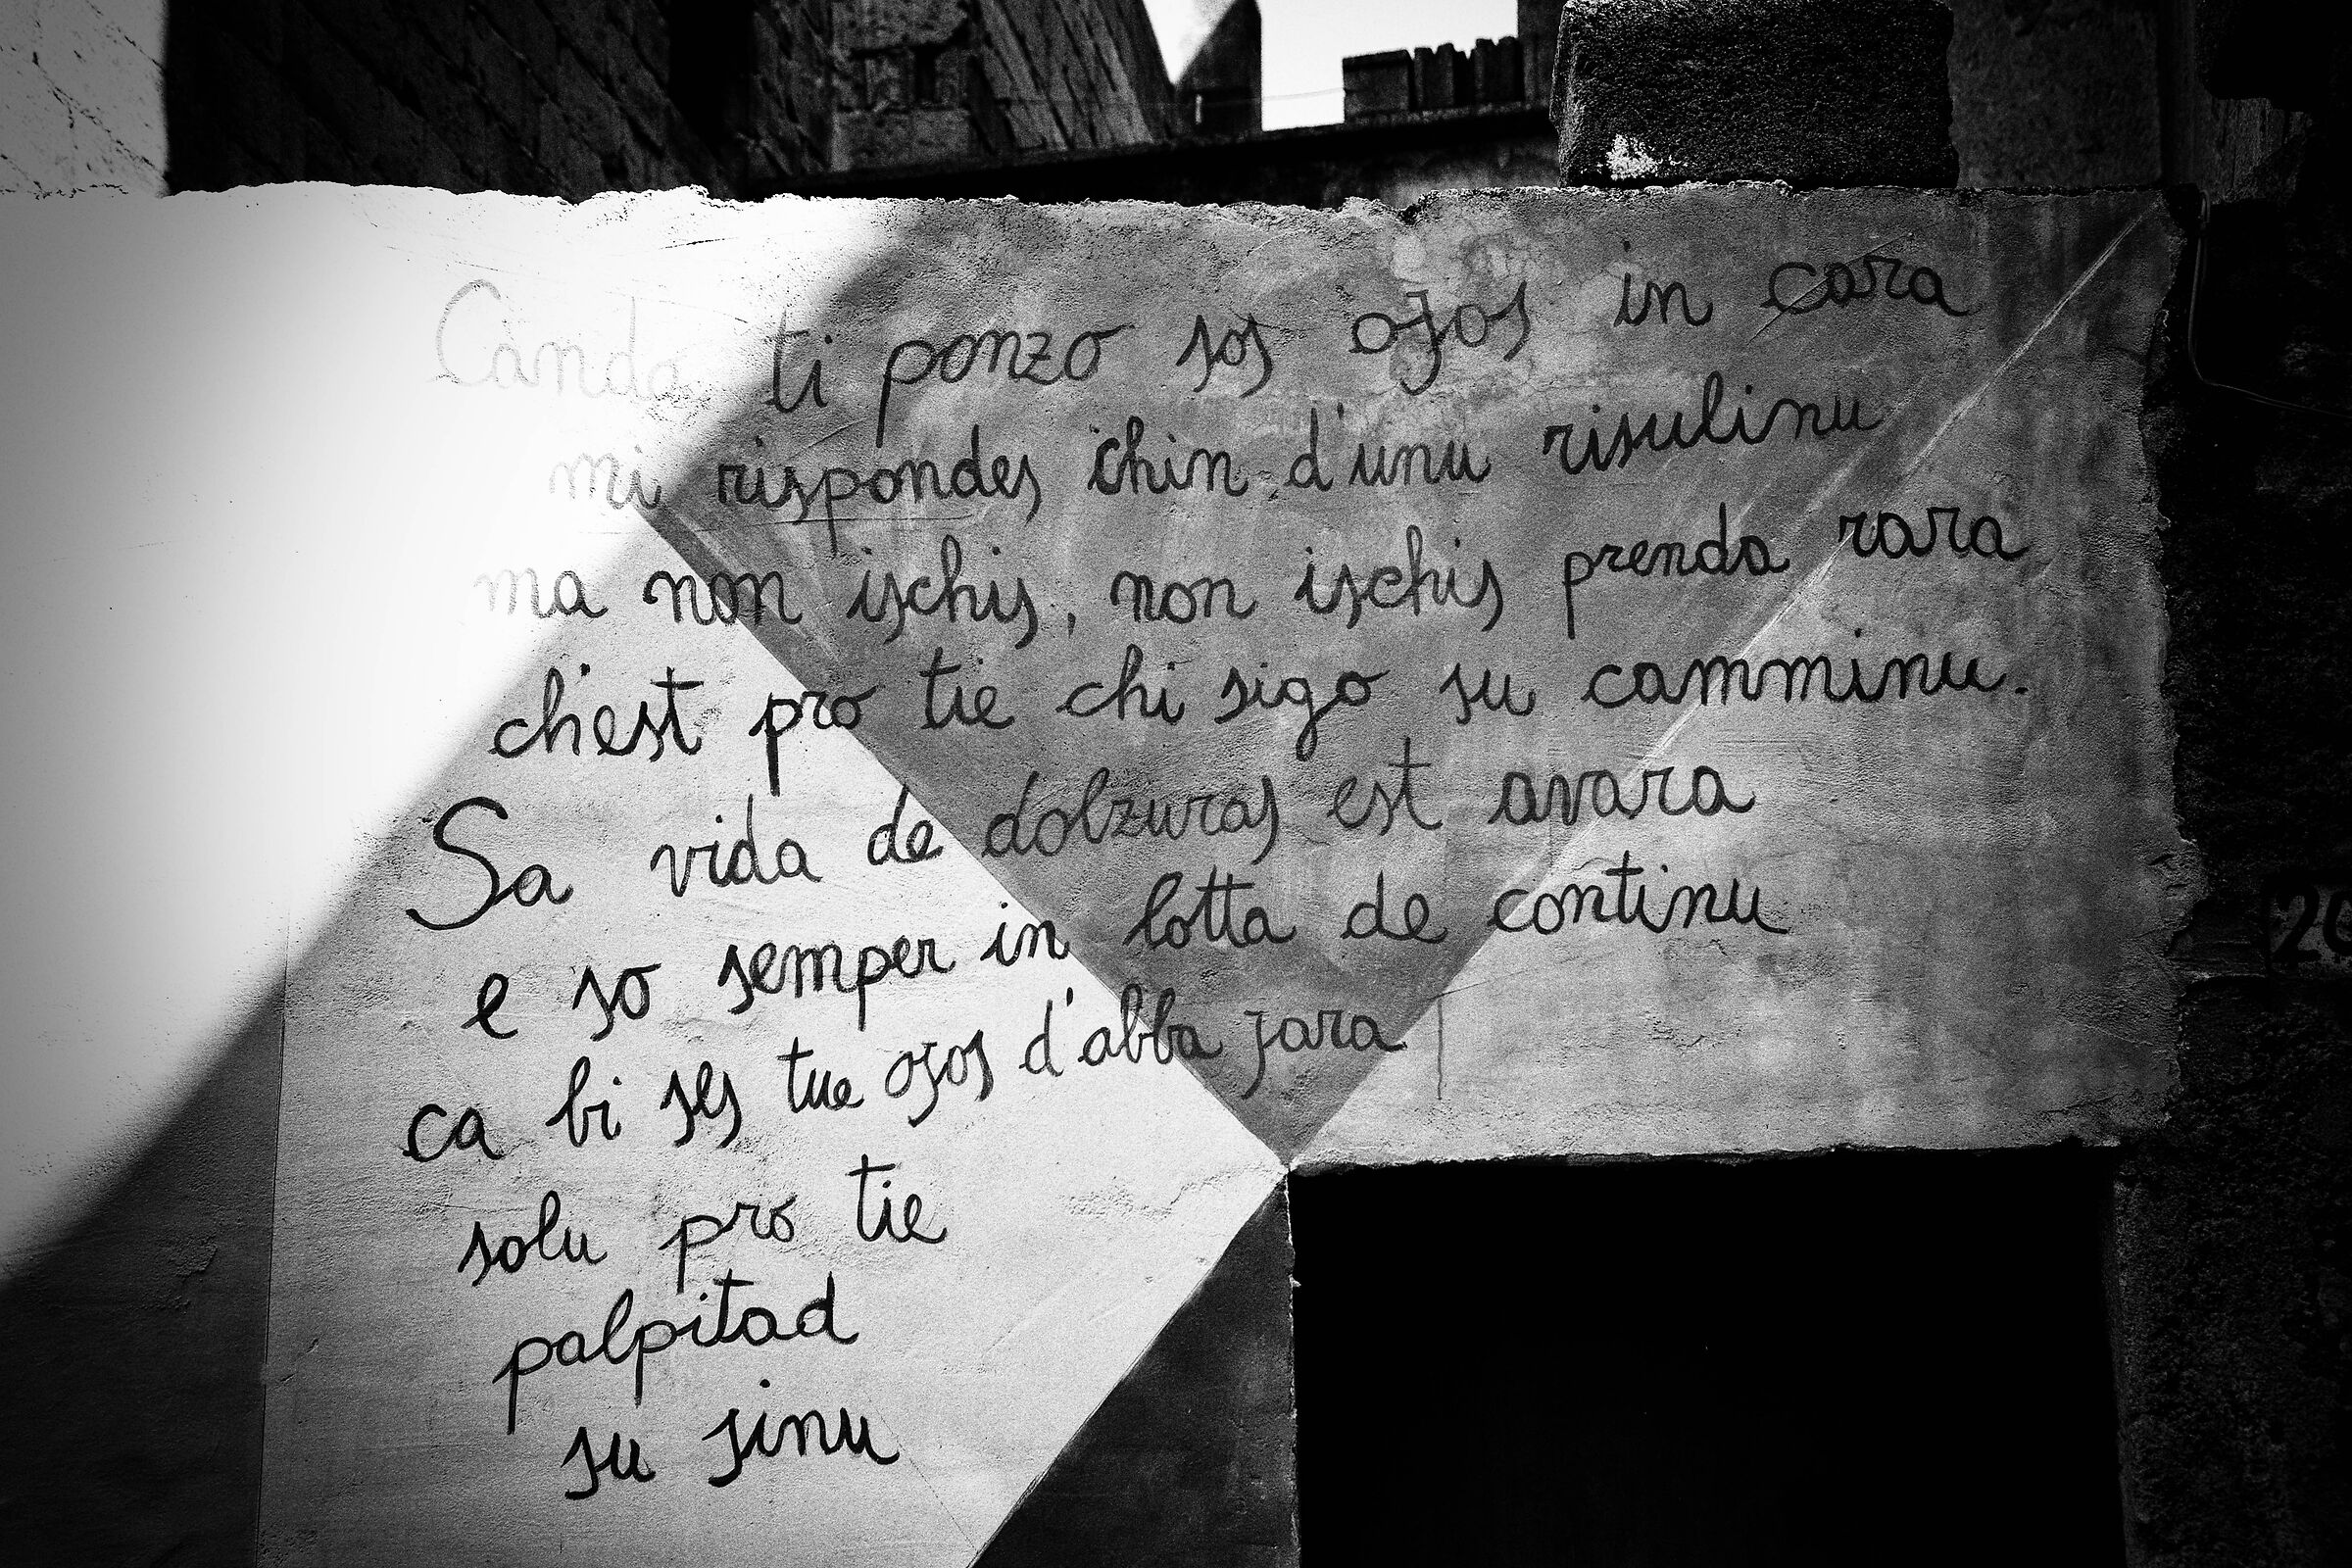 Candο ti ponzo sos ojos in cara
mi rispondes chin d'unu risulinu
ma non ischis, non ischis prenda rara
ch'est pro tie chi sigo su camminu.
Sa vida de dolzuras est avara
e so semper in lotta de continu
ca bi ses tue ojos d'abba jara
solu pro tie
palpitad
su sinu